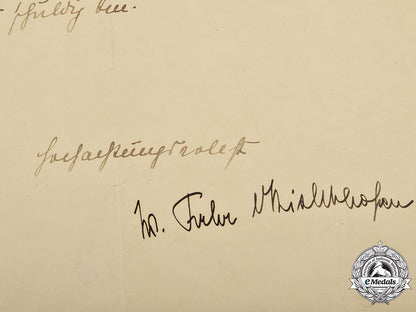 schuldig bin.
Hochachtungsvollst
W. Frhr v Richthofen
eMedals